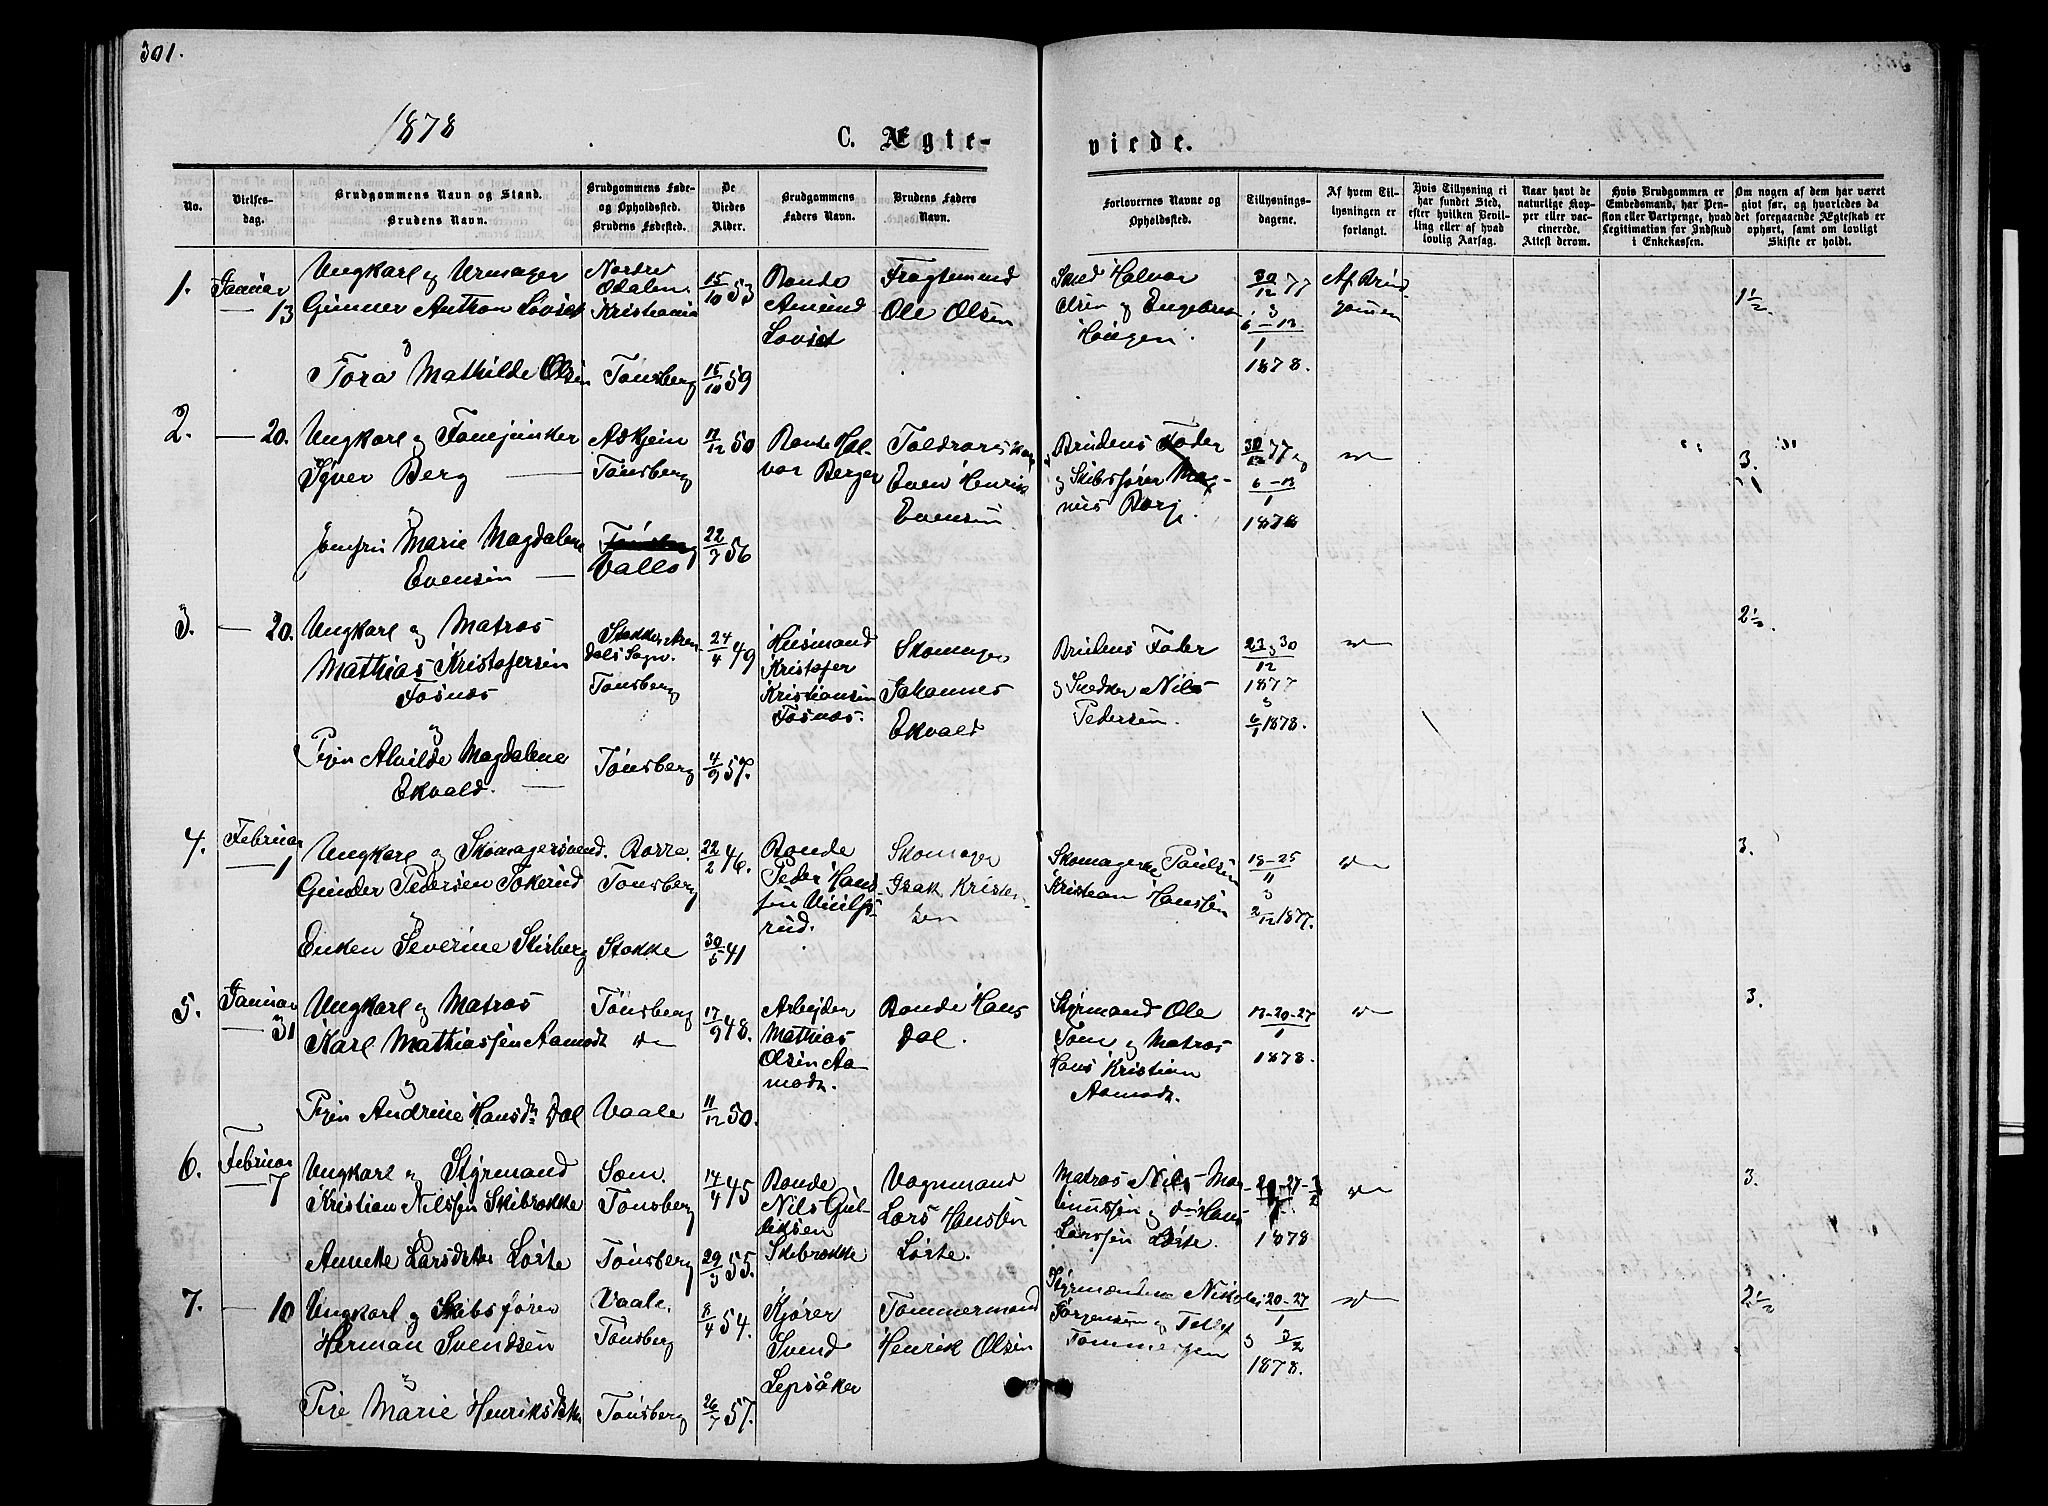 301.
1878
C. Ægte-
viede.
No.
Vielses-
dag.
Brudgommens Navn og Stand.
Brudens Navn.
Brudgommens Føde-
og Opholdssted.
Brudens Fødested.
De
Viedes
Alder.
Brudgommens
Faders Navn.
Brudens Faders
Navn.
Forlovernes Navne og
Opholdssted.
Tillysnings-
dagene.
Af hvem Til-
lysningen er
forlangt.
Hvis Tillysning ei
har fundet Sted,
efter hvilken Bevil-
ling eller af hvad
lovlig Aarsag.
Naar havt de
naturlige Kop-
per eller vac-
cinerede.
Attest derom.
Hvis Brudgommen er
Embedsmand, har Pen-
sion eller Vartpenge, hvad
Legitimation for Indskud
i Enkekassen.
Om nogen af dem har været
givt før, og hvorledes da
det foregaaende Ægteskab er
ophørt, samt om lovligt
Skifte er holdt.
1.
Januar
— 13
Ungkarl og Urmager
Gunner Anthon Lovset
og
Tora Mathilde Olsen
Nordre
Odalen
Kristiania
Tönsberg
15/10 53
15/10 59
Bonde
Amund
Lovset
Fragtemand
Ole Olsen
Smed Halvor
Olsen og Engebret
Haugen.
30/12 77
6-13/1
1878.
Af Brud-
gommen
1½
2.
— 20.
Ungkarl og Fanejunker
Syver Berg —
og
Jomfru Marie Magdalene
Evensen —
Askjein
Tönsberg
Vallö
17/12 50
22/7 56
Bonde Hal-
vor Berger
Toldrorskarl
Even Henrik
Evensen.
Brudens Fader
og Skibsfører Mag-
nus Borg.
30/12 77 og
6-13/1
1878
3.
3.
— 20.
Ungkarl og Matros
Mathias Kristofersen
Fosnæs
og
Pigen Alvilde Magdalene
Ekvald. —
Tönsberg
Tönsberg
24/4 49
4/9 57.
Husmand
Kristofer
Kristiansen
Fosnæs.
Skomager
Johannes
Ekvald
Brudens Fader
og Snedker Nils
Pedersen.
23 & 30/12
1877
&
6/1 1878.
2½
4.
Februar
— 1
Ungkarl og Skomagersvend.
Gunder Pedersen Tokerud
Enken Severine Skisberg
Borre.
Tonsberg
Stokke
22/2 46.
30/5 41
Bonde
Peder Hans-
sen
rud.
Skomager
Isak Kristen-
sen
Skomagerne Paulsen
Kristian Hanssen
18-25/11
&
2/12 1877.
3.
5.
Januar
— 31
Ungkarl og Matros
Karl Mathiassen Aamodt
og
Pigen Andrine Hansdr Dal
Tönsberg
Vaale
17/9 48.
11/12 50.
Arbeider
Mathias
Olsen Aa-
modt.
Bonde Hans
Dal.
Styrmand Ole
Tom og Matros
Hans Kristian
Aamodt.
13-20-27/1
1878.
3.
6.
Februar
— 7
Ungkarl og Styrmand
Kristian Nilssen Skibrokke
og
Annette Larsdatter Löite
Sæm.
Tonsberg
Tönsberg
14/4 45
29/3 55.
Bonde
Nils Gul-
liksen
Skibrokke
Vognmand
Lars Hansen
Löite.
Matros Nils Mar-
tinussen og do Hans
Larssen Löite.
1878
3.
7.
— 10
Ungkarl og Skibsfører
Herman Svendsen
og
Pige Marie Henriksdatter
Vaale.
Tönsberg
Tönsberg
8/4 54.
26/7 57.
Kjører
Svend
Lepsåker
Tømmermand
Henrik Olsen
Styrmændene Nikolai
Jørgensen og
Tommessen
20-27/1
& 3/2
1878.
2½